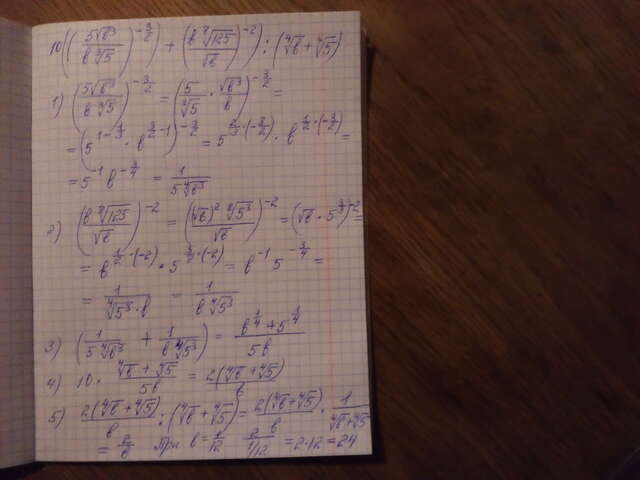 10(((5√b³)/(b ∛5))^(-3/2) + ((b ⁸√125)/√b)^(-2)) : (⁴√b + ⁴√5)
1) ((5√b³)/(b ∛5))^(-3/2) = (5/∛5 · √b³/b)^(-3/2) =
= (5^(1-1/3) · b^(3/2-1))^(-3/2) = 5^(2/3·(-3/2)) · b^(1/2·(-3/2)) =
= 5^(-1) b^(-3/4) = 1/(5 ⁴√b³)
2) ((b ⁸√125)/√b)^(-2) = (((√b)² ⁸√5³)/√b)^(-2) = (√b · 5^(3/8))^(-2) =
= b^(1/2·(-2)) · 5^(3/8·(-2)) = b^(-1) 5^(-3/4) =
= 1/(⁴√5³ · b) = 1/(b ⁴√5³)
3) (1/(5 ⁴√b³) + 1/(b ⁴√5³)) = (b^(1/4) + 5^(1/4))/(5b)
4) 10 · (⁴√b + ⁴√5)/(5b) = 2(⁴√b + ⁴√5)/b
5) 2(⁴√b + ⁴√5)/b : (⁴√b + ⁴√5) = 2(⁴√b + ⁴√5)/b · 1/(⁴√b + ⁴√5)
= 2/b При b = 1/12 2/(1/12) = 2·12 = 24